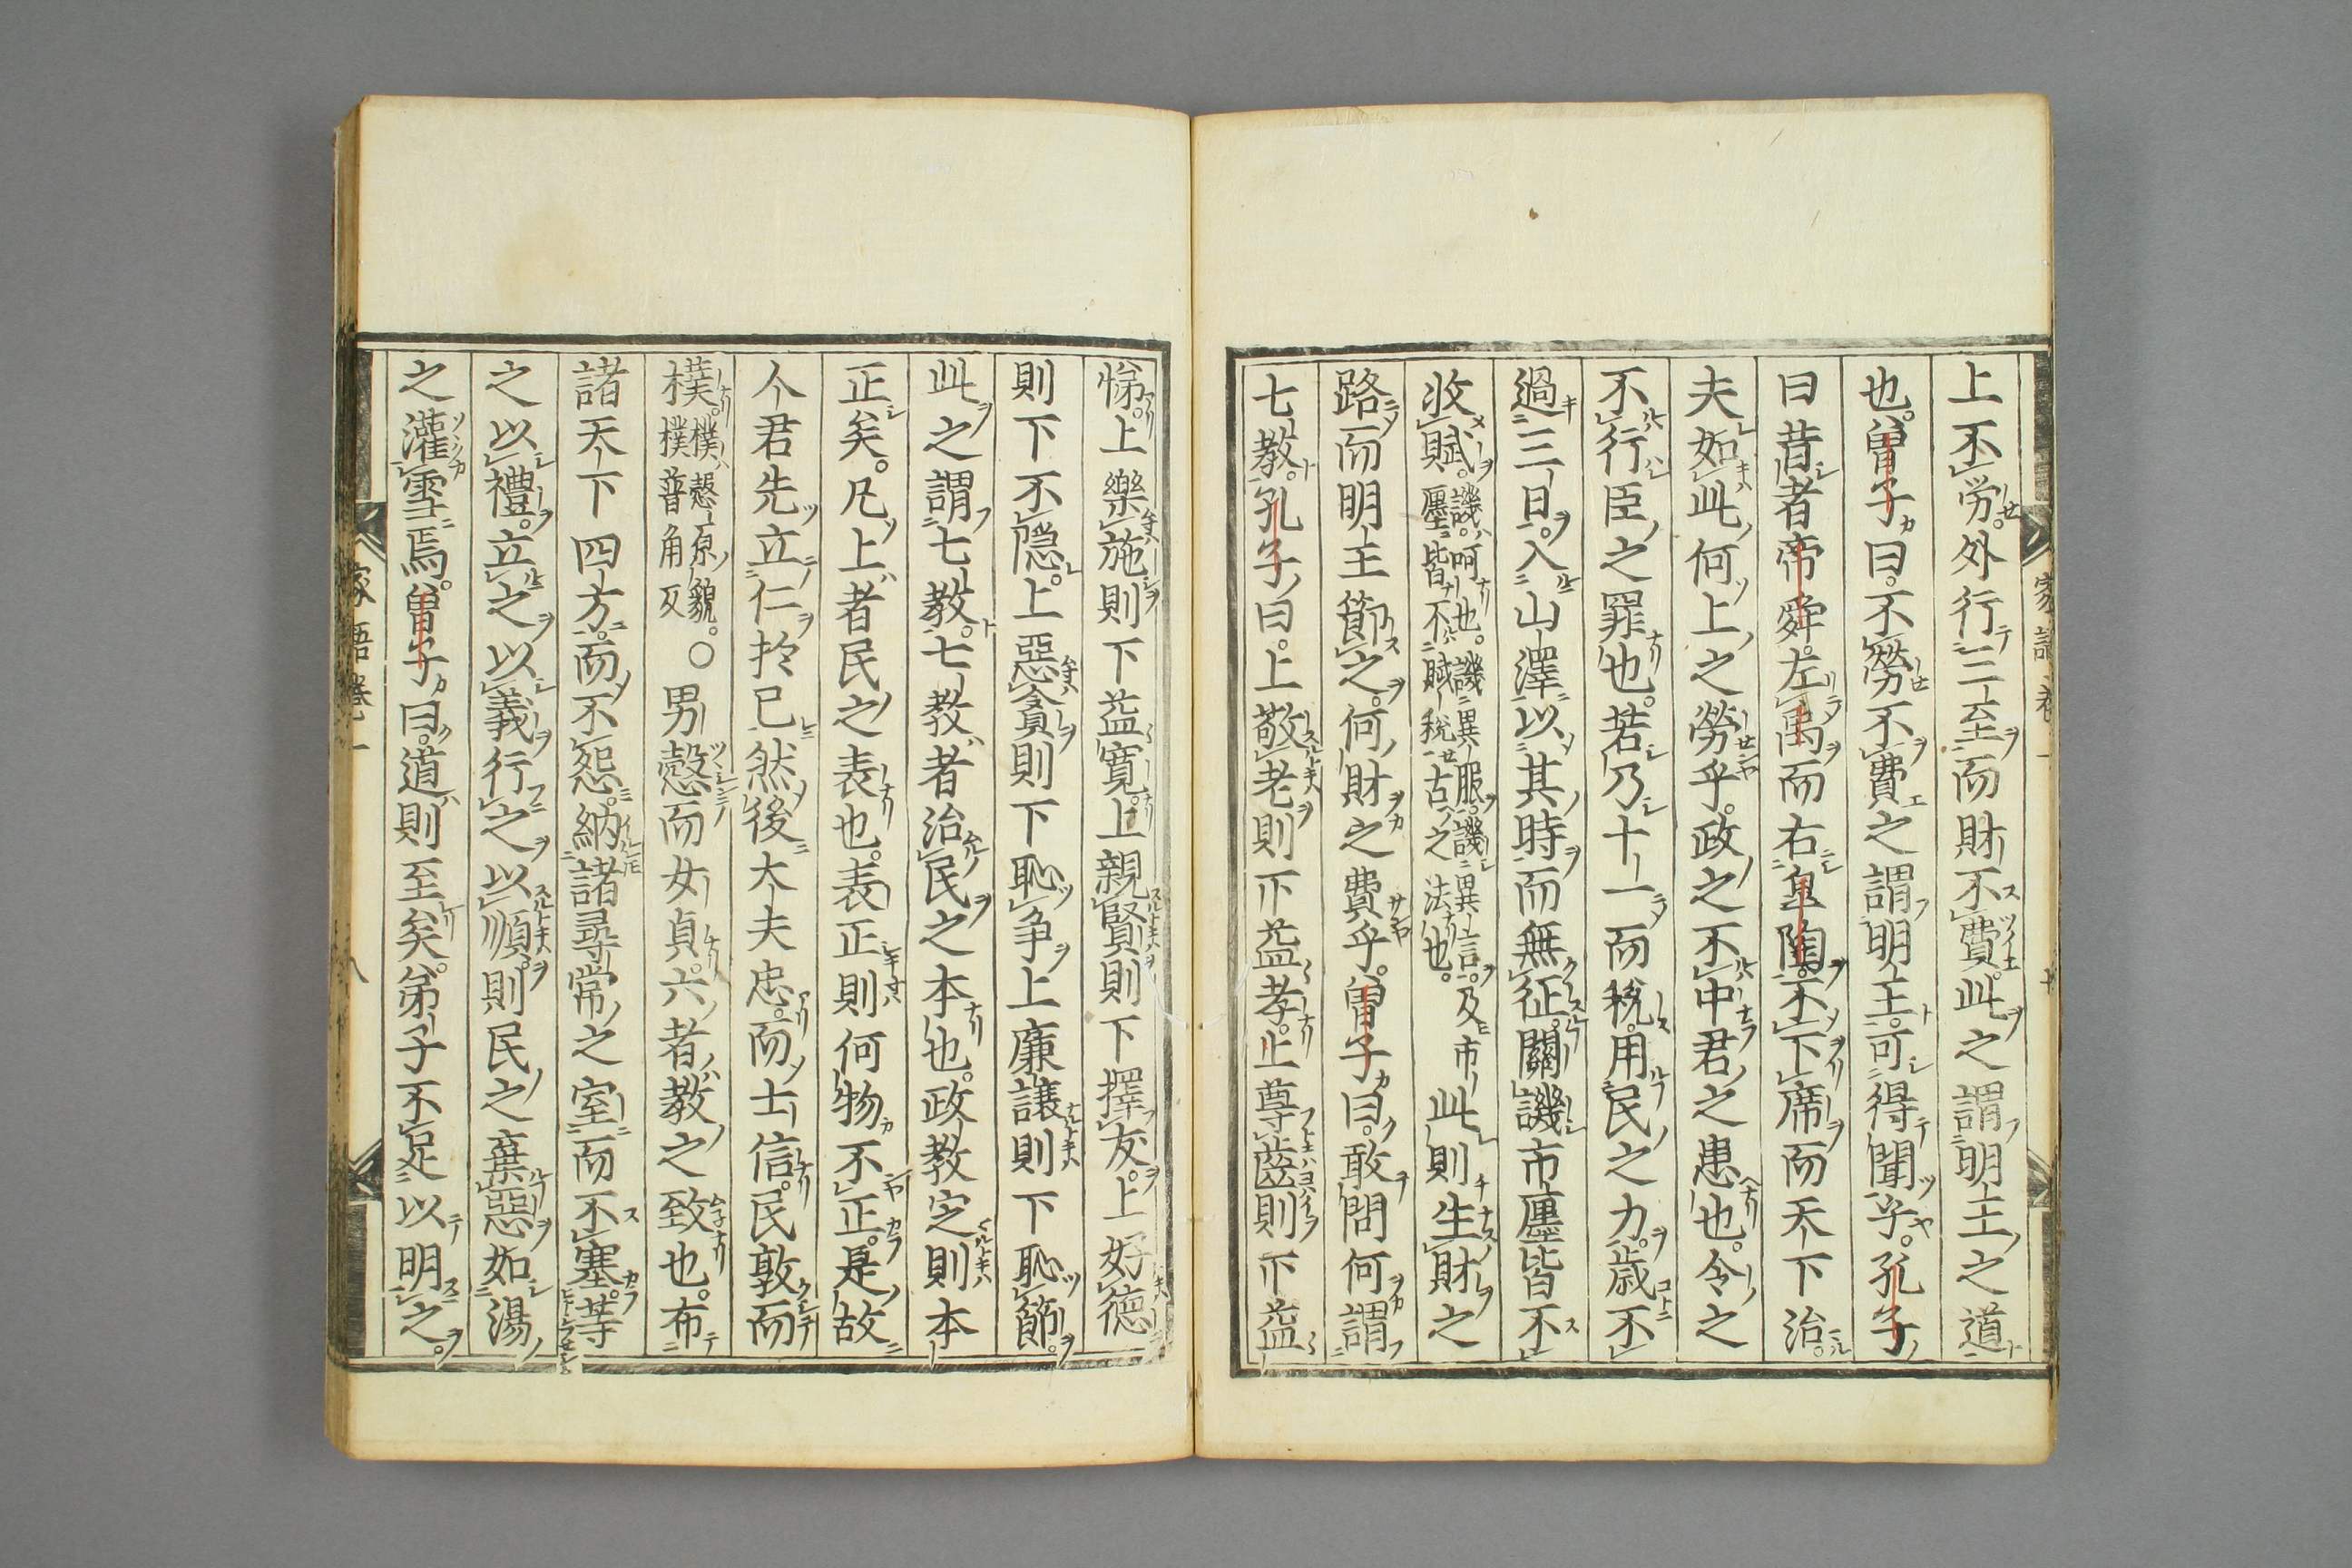 上不労。外行三至而財不費。此之謂明王之道
也。曽子曰。不勞不費之謂明王。可得聞乎。孔子
曰昔者帝舜。左禹而右皐陶。不下席而天下治。
夫如此何上之勞乎。政之不中君之患也。令之
不行臣之罪也。若乃十一而税。用民之力。歳不
過三日。入山澤以其時而無征。關譏市廛皆不
收賦。譏。呵也。譏異服。譏異言。及市
廛皆不賦税古之法也。此則生財之
路而明王節之。何財之費乎。曽子曰。敢問何謂
七教。孔子曰。上敬老則下益孝。上尊齒則下益
悌。上樂施則下益寛。上親賢則下擇友。上好徳
則下不隠。上惡貪則下恥争上廉譲則下恥節。
此之謂七教。七教者治民之本也。政教定則本
正矣。凡上者民之表也。表正則何物不正。是故
人君先立仁於已然後大夫忠。而士信。民敦而
樸。樸慤原貌。
樸普角反〇男慤而女貞。六者教之致也。布
諸天下四方。而不怨。納諸尋常之室而不塞。等
之以禮。立之以義行之以順。則民之棄惡如湯
之灌雪焉。曽子曰。道則至矣。弟子不足以明之。
家語巻一
家語巻一 八